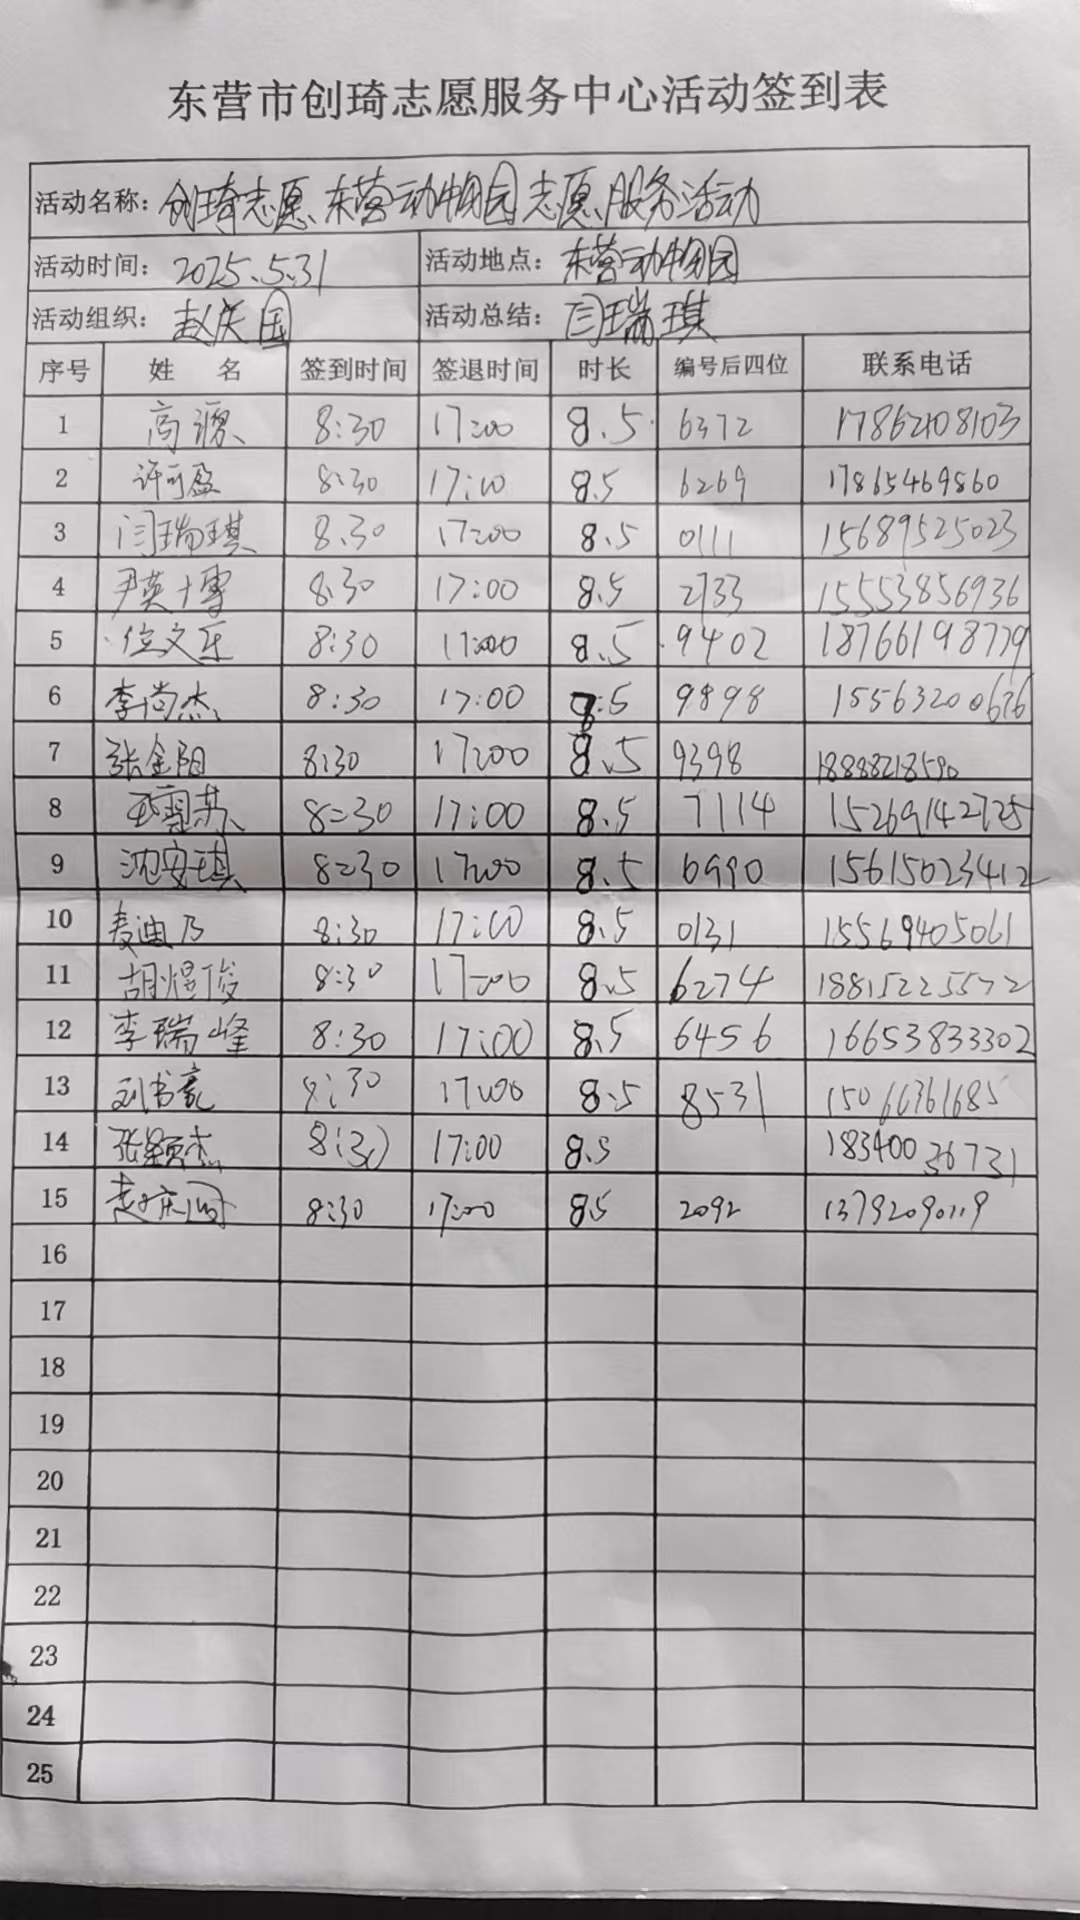 东营市创琦志愿服务中心活动签到表
活动名称：创琦志愿东营动物园志愿服务活动
活动时间：2025.5.31 活动地点：东营动物园
活动组织：赵庆国 活动总结：闫瑞琪
序号 姓 名 签到时间 签退时间 时长 编号后四位 联系电话
1 高源 8:30 17:00 8.5 6372 17862108103
2 许可盈 8:30 17:00 8.5 6269 17865469860
3 闫瑞琪 8:30 17:00 8.5 0111 15689525023
4 尹英博 8:30 17:00 8.5 2733 15553856936
5 位文乐 8:30 17:00 8.5 9402 18766198779
6 李尚杰 8:30 17:00 8.5 9898 15563200676
7 张金阳 8:30 17:00 8.5 9398 18888218590
8 8:30 17:00 8.5 7114 15269142725
9 沈安琪 8:30 17:00 8.5 6990 15615023412
10 麦迪乃 8:30 17:00 8.5 0131 15569405061
11 胡煜俊 8:30 17:00 8.5 6274 18815225572
12 李瑞峰 8:30 17:00 8.5 6456 16653833302
13 刘书豪 8:30 17:00 8.5 8531 15066361685
14 张颖杰 8:30 17:00 8.5 18340036731
15 赵庆国 8:30 17:00 8.5 2092
16
17
18
19
20
21
22
23
24
25